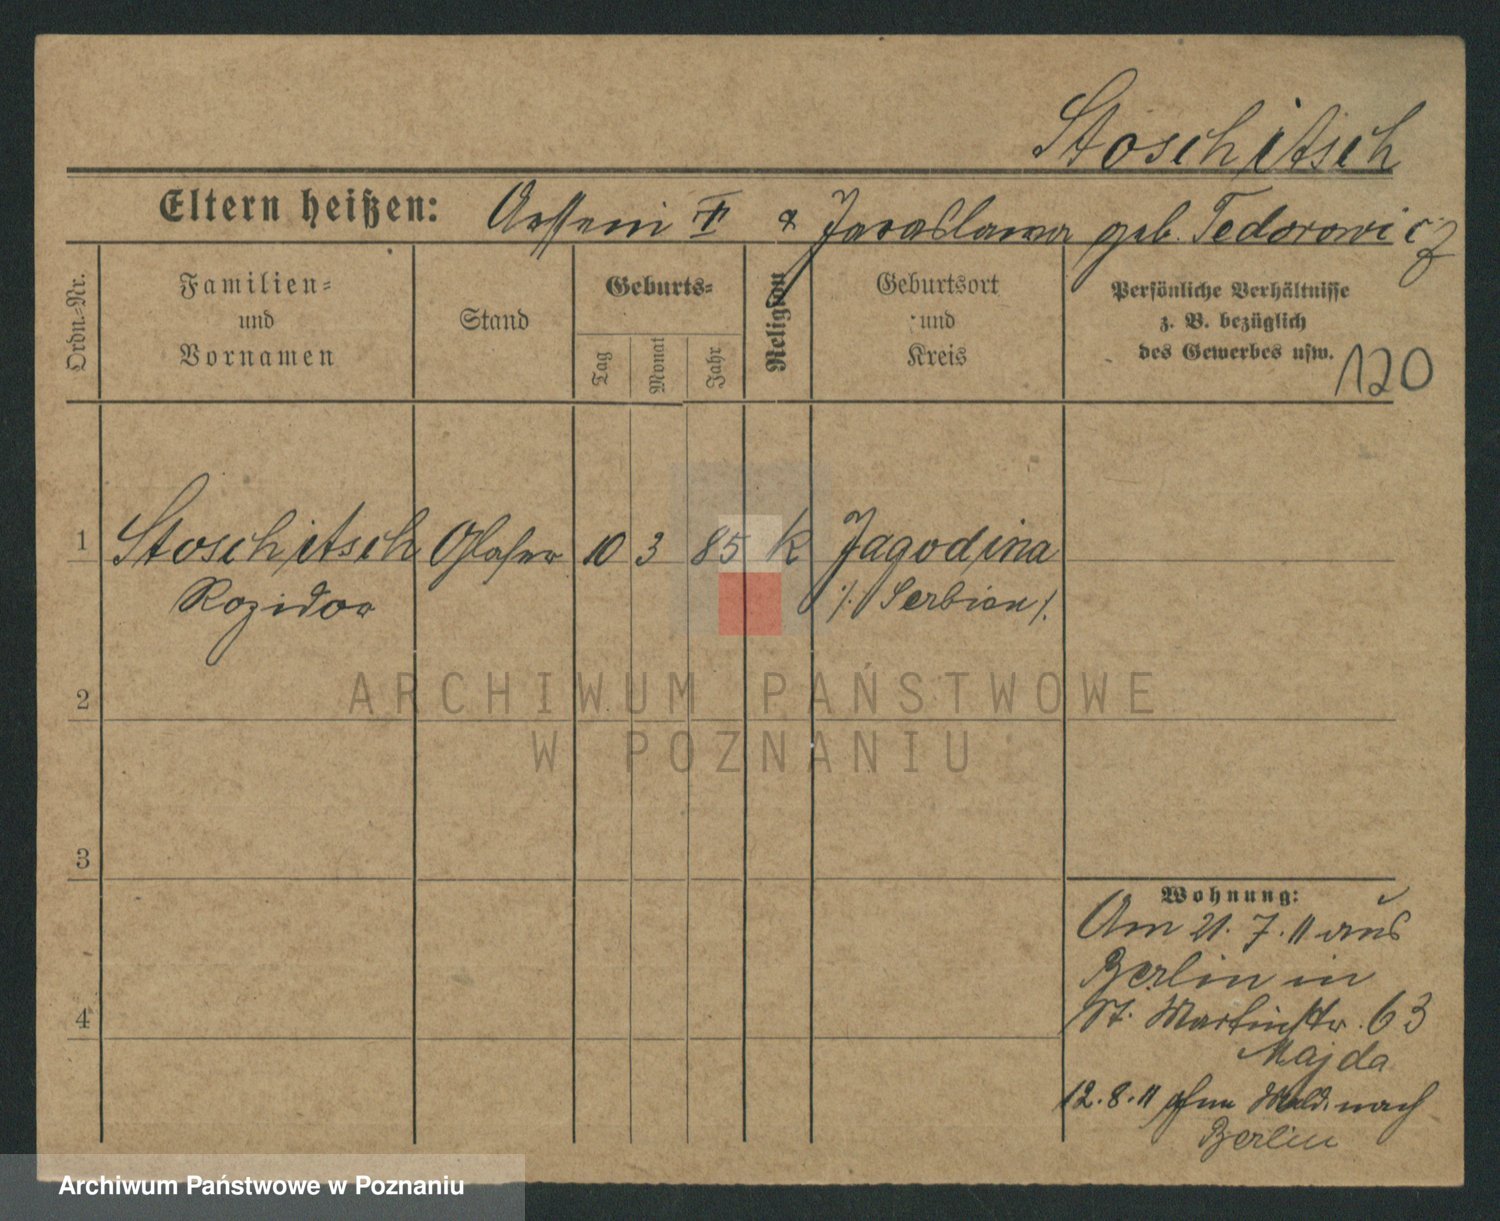 Stoschitsch
Eltern heißen: Arsseni † & Jaroslawa geb. Tedorowicz
Ordn.=Nr.
Familien=
und
Vornamen
Stand
Geburts=
Tag
Monat
Jahr
Religion
Geburtsort
und
Kreis
Persönliche Verhältnisse
z. B. bezüglich
des Gewerbes usw.
120
1 Stoschitsch Glaser 10 3 85 K Jagodina
/. Serbien /.
2
3
4
Wohnung:
Am 21. 7. 11 aus
Berlin in
St. Martinstr. 63
Majda
12. 8. 11 ohne Meld. nach
Berlin
ARCHIWUM PAŃSTWOWE
W POZNANIU
Archiwum Państwowe w Poznaniu